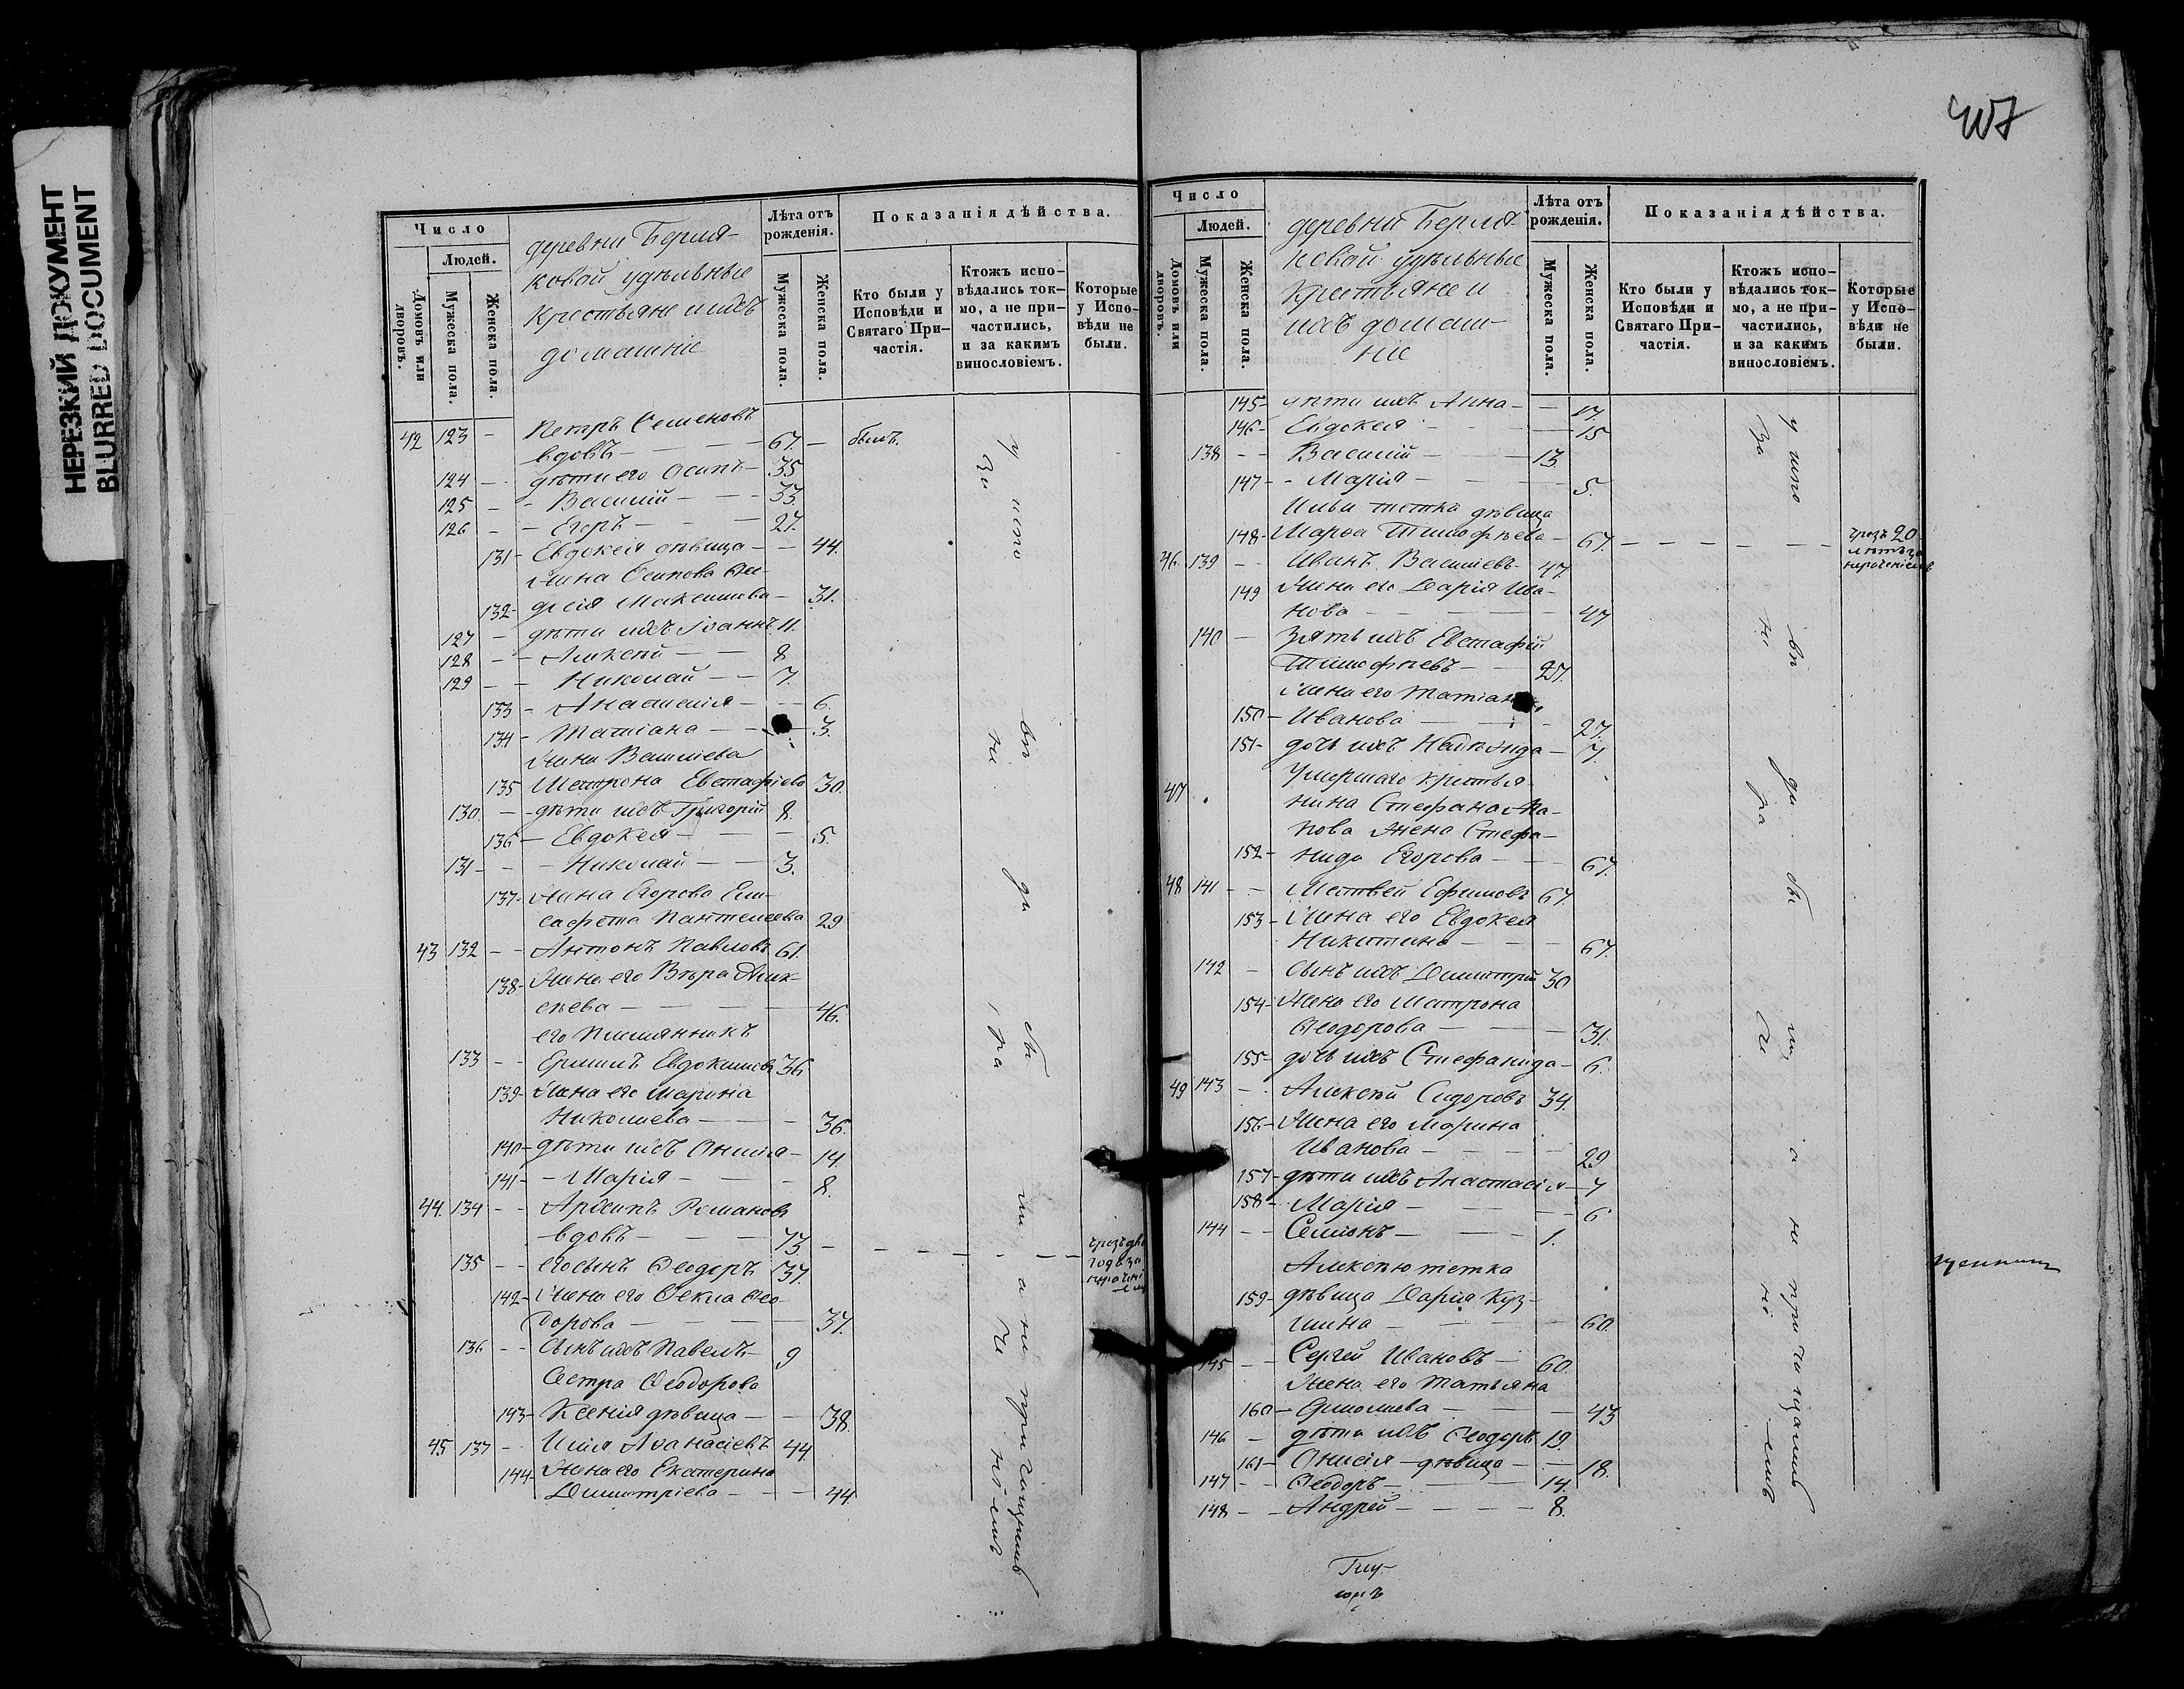 НЕРЕЗКИЙ ДОКУМЕНТ
BLURRED DOCUMENT
Число
Людей.
Домовъ или дворовъ.
Мужеска пола.
Женска пола.
деревни Берля-
ковой удѣльные
крестьяне и ихъ
домашніе
Лѣта отъ рожденія.
Мужеска пола.
Женска пола.
Показанія дѣйства.
Кто были у Исповѣди и Святаго Причастія.
Ктожъ исповѣдались токмо, а не причастились, и за какимъ винословіемъ.
Которые у Исповѣди не были.
42 123 - Петръ Семеновъ
вдовъ - 67. - былъ.
124 - дѣти его Осипъ - 35
125 - - Василій - 33.
126 - - Егоръ - 27.
131 - Евдокія дѣвица - 44.
жена Осипова
132 - Максимова - 31.
127 - дѣти ихъ Іоаннъ 11.
128 - - Алексѣй - 8
129 - - Николай - 7.
133 - Анастасія - 6.
134 - Татіана - 3.
жена Васильева
135 Матрона Евстафіева 30.
130 - дѣти ихъ Григорій 8.
136 - Евдокея - 5.
131 - - Николай - 3.
137 - жена Егорова Ели-
савета Пантелеева 29
43 132 - - Антонъ Павловъ 61.
138 - жена его Вѣра Алек-
сѣева - 46.
его племянникъ
133 - - Ермилъ Евдокимовъ 36
139 - жена его Марина
Николаева - 36.
140 - дѣти ихъ Онисія - 14
141 - - Марія - 8.
44. 134 - - Архипъ Романовъ
вдовъ - 73 -
135 - - его сынъ Ѳеодоръ 37.
142 - жена его Ѳекла Ѳео-
дорова - 37.
136 - - сынъ ихъ Павелъ - 9
Сестра Ѳеодорова
143 - Ксенія дѣвица - 38.
45 137 - Илія Аѳанасіевъ 44.
144 - жена его Екатерина
Димитріева - 44
у испо вѣ да ли а не причащались
за не ра че ніемъ
407
Число
Людей.
Домовъ или дворовъ.
Мужеска пола.
Женска пола.
деревни Берля-
ковой удѣльные
крестьяне и
ихъ домаш-
ніе
Лѣта отъ рожденія.
Мужеска пола.
Женска пола.
Показанія дѣйства.
Кто были у Исповѣди и Святаго Причастія.
Ктожъ исповѣдались токмо, а не причастились, и за какимъ винословіемъ.
Которые у Исповѣди не были.
145 - дѣти ихъ Анна - 17.
146 - Евдокея - 15
138 - - Василій - 13.
147 - - Марія - 5.
Ильи тетка дѣвица
148 - Марѳа Тимофѣева - 67. - чрезъ 20
лѣтъ за
нераченіемъ
46. 139 - - Иванъ Васильевъ - 47.
149 жена его Дарія Ива-
нова - 47
140 - зять ихъ Евстафій
Тимофѣевъ - 27.
жена его Татіана
150 - Иванова - 27.
151 - дочь ихъ 7.
47 умершаго крестья-
нина Стефана
жена Стефа-
152 - нида Егорова - 67.
48 141 - - Матвей Ефимовъ 67.
153 - жена его Евдокея
Никитина - 67.
142 - сынъ ихъ Димитрій 30
154 - жена его Матрона
Ѳеодорова - 31.
155 - дочь ихъ Стефанида - 6.
49 143 - - Алексѣй Сидоровъ 34.
156 - жена его Марина
Иванова - 29
157 - дѣти ихъ Анастасія - 7
158 - Марія - 6
144 - - Семіонъ - 1.
Алексѣю тетка
159 - дѣвица Дарія Куз-
мина - 60.
145 - - Сергей Ивановъ - 60.
жена его Татьяна
160 - Ермолаева - 43
146 - дѣти ихъ Ѳеодоръ 19.
161 - Онисія - дѣвица - 18.
147 - - Ѳеодоръ - 14.
148 - - Андрей - 8.
у испо вѣ да ли а не причащались
за не ра че ніемъ